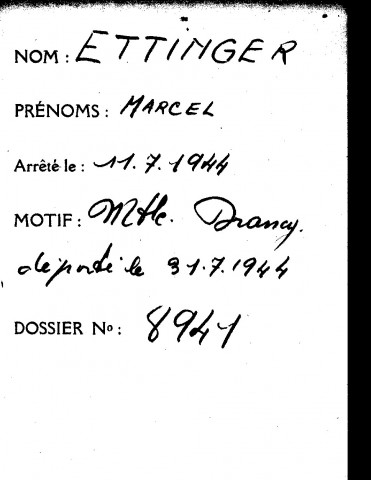 NOM : ETTINGER
PRÉNOMS : MARCEL
Arrêté le : 11.7.1944
MOTIF : Mtle. Drancy.
déporté le 31.7.1944
DOSSIER No : 8941